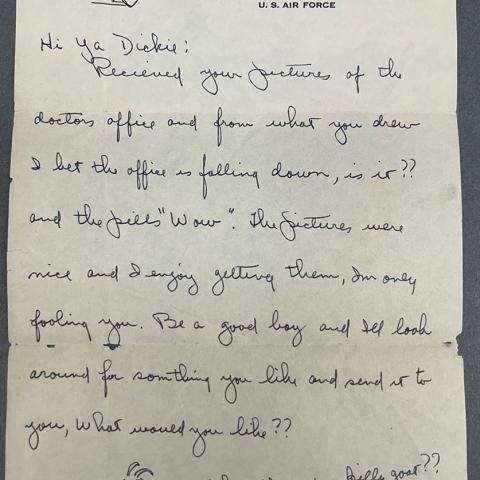 U. S. AIR FORCE
Hi Ya Dickie:
Recieved your pictures of the
doctors office and from what you drew
I bet the office is falling down, is it??
and the pills "Wow". The pictures were
nice and I enjoy getting them, Im only
fooling you. Be a good boy and Ill look
around for somthing you like and send it to
you, What would you like??
billy goat??